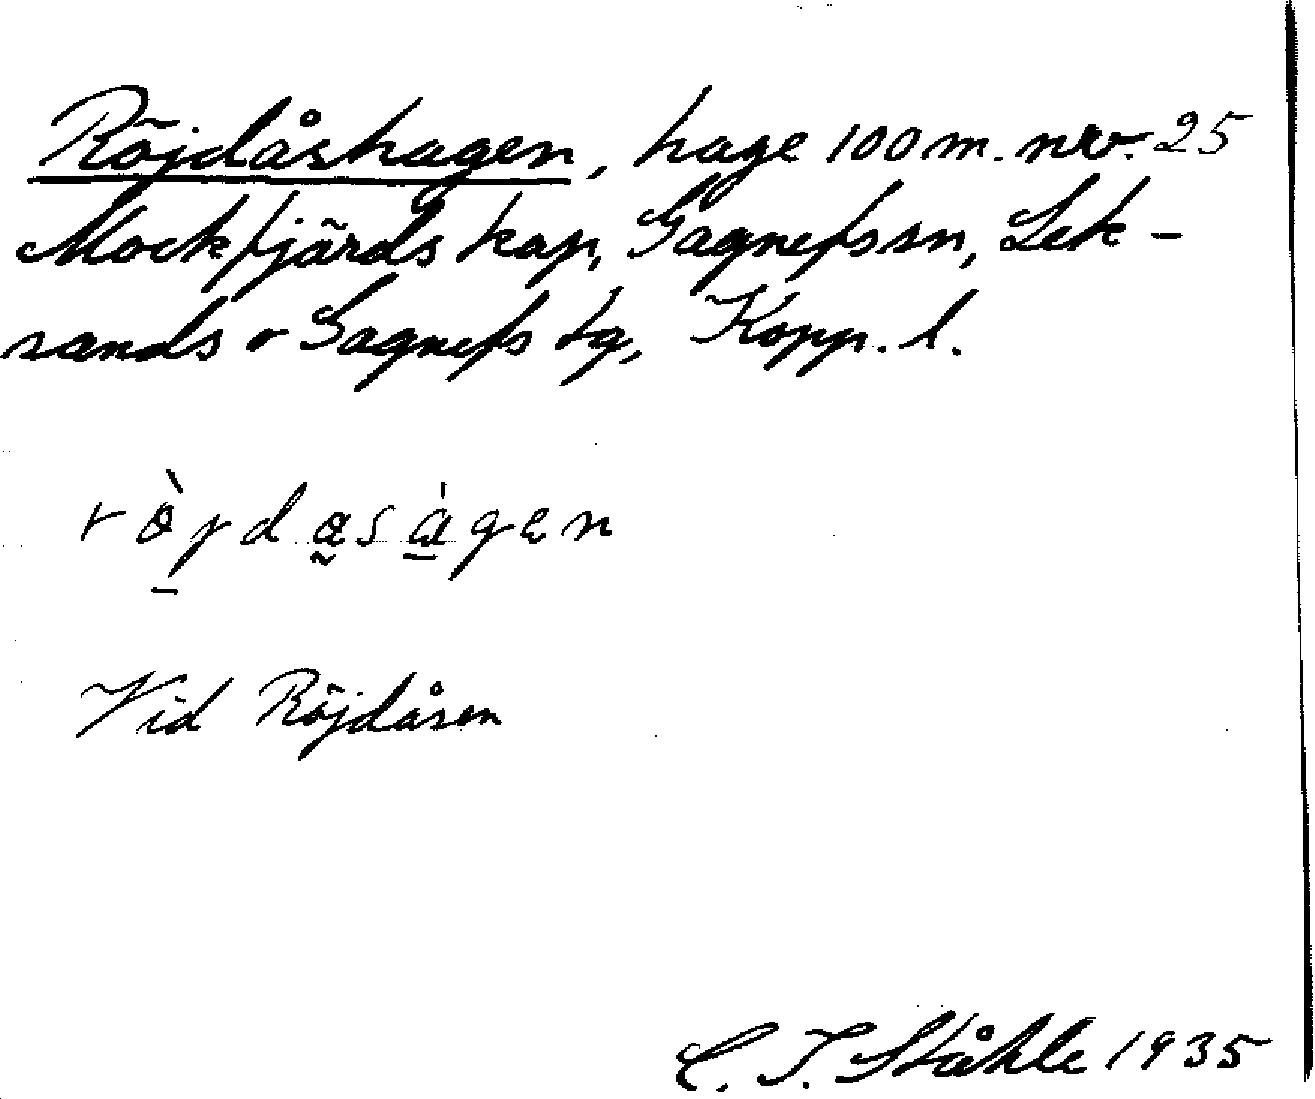 Röjdåshagen, hage 100 m. nv. 25
Mockfjärds kap, Gagnefs sn, Lek-
sands o Gagnefs tg, Kopp. l.
rö̀jdasàgen
Vid Röjdåsen
C. I. Ståhle 1935